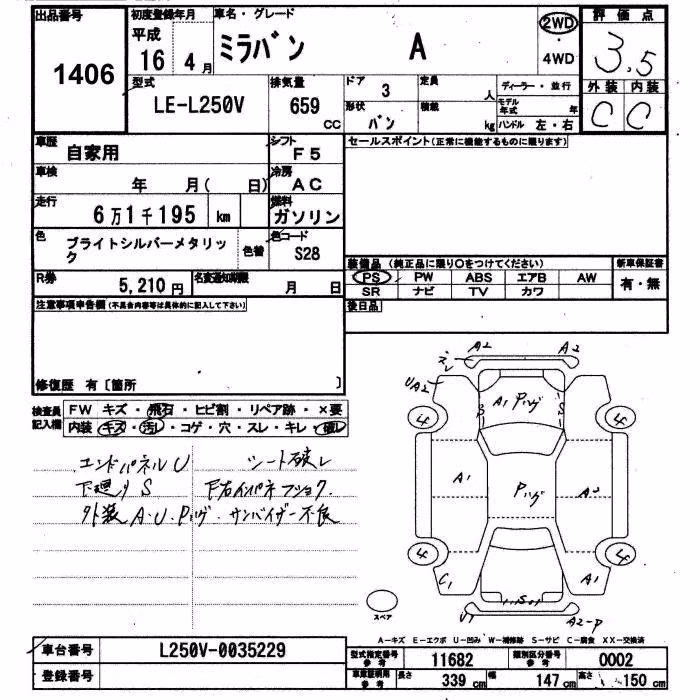 出品番号 初度登録年月 車名・グレード 2WD 評価点
1406 平成 16年 4月 ミラバン A ・ 4WD 3.5
型式 排気量 ドア 定員 ディーラー・並行 外装 内装
LE-L250V 659 CC 3 人 モデル年式 年 C C
形状 積載
バン kg ハンドル 左・右
車歴 自家用 シフト F5 セールスポイント(正常に機能するものに限ります)
車検 年 月( 日) 冷房 AC
走行 6万1千195 km 燃料 ガソリン
色 ブライトシルバーメタリック 色替 色コード S28
装備品 (純正品に限り○をつけてください) 新車保証書
R券 5,210円 名変通知期限 月 日 PS PW ABS エアB AW 有・無
SR ナビ TV カワ
注意事項申告欄(不具合内容等は具体的に記入して下さい) 後日品
修復歴 有〔箇所 〕
検査員記入欄 FW キズ・飛石・ヒビ割・リペア跡・×要
内装 キズ・汚レ・コゲ・穴・スレ・キレ・破レ
エンドパネルU シート破レ
下廻りS F右インパネフショク
外装A.U.Pハゲ・サンバイザー不良
A2 A2
ズレ
UA2
A1 Pハゲ
S S
4 4
A1 Pハゲ A2
4 4
C1 S A1
スペア U1 A2-P
A-キズ E-エクボ U-凹み W-補修跡 S-サビ C-腐食 XX-交換済
車台番号 L250V-0035229 型式指定番号 参考 11682 類別区分番号 参考 0002
登録番号 車庫証明用 参考 長さ 339cm 幅 147cm 高さ 150cm